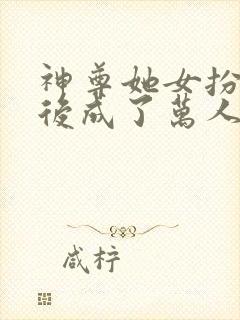 神尊她女扮
後成了萬人
咸梓